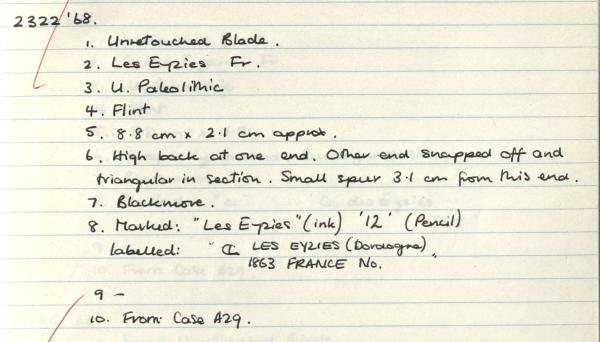 2322 '68.
1. Unretouched Blade.
2. Les Eyzies Fr.
3. U. Paleolithic
4. Flint
5. 8.8 cm x 2.1 cm approx.
6. High back at one end. Other end snapped off and
triangular in section. Small spur 3.1 cm from this end.
7. Blackmore.
8. Marked: "Les Eyzies" (ink) '12' (Pencil)
labelled: " LES EYZIES (Dordogne)
1863 FRANCE No. "
9 -
10. From Case A29.